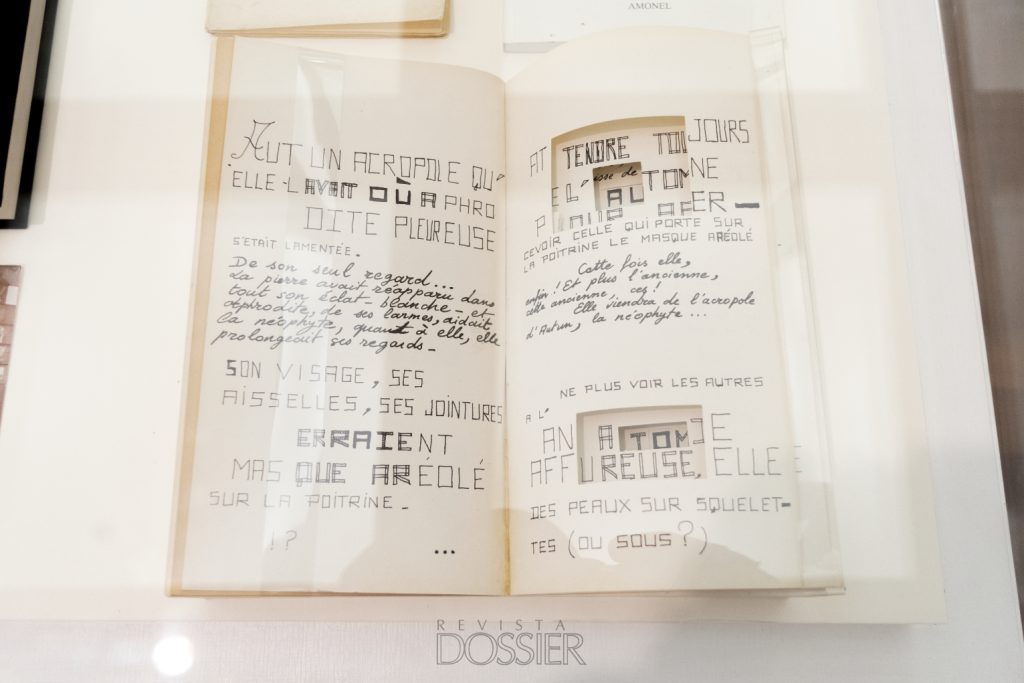 AMONEL
AUT UN ACROPOLE QU'
ELLE L'AVAIT OÙ APHRO
DITE PLEUREUSE
S'ÉTAIT LAMENTÉE.
De son seul regard...
La pierre avait réapparu dans
tout son éclat - blanche - et
Aphrodite, de ses larmes, aidait
la néophyte, quant à elle, elle
prolongeait ses regards -
SON VISAGE, SES
AISSELLES, SES JOINTURES
ERRAIENT
MAS QUE ARÉOLÉ
SUR LA POITRINE -
!?
...
AT TENDRE TOUJOURS
EL AUTOMNE
AFER -
CEVOIR CELLE QUI PORTE SUR
LA POITRINE LE MASQUE ARÉOLÉ
Cette fois elle,
enfin! Et plus l'ancienne,
cette ancienne, ces!
Elle viendra de l'acropole
d'Autun, la néophyte...
NE PLUS VOIR LES AUTRES
A L'
AN A TOMIE
AFFUREUSE, ELLE
DES PEAUX SUR SQUELET-
TES (OU SOUS?)
REVISTA
DOSSIER